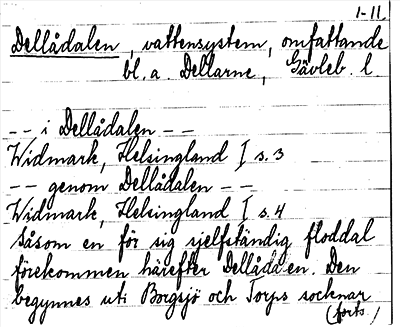 1-11
Dellådalen, vattensystem, omfattande
bl. a. Dellarne, Gävleb. l.
-- i Dellådalen --
Widmark, Helsingland I s. 3
-- genom Dellådalen --
Widmark, Helsingland I s. 4
Såsom en för sig sjelfständig floddal
förekommen härefter Dellådalen. Den
begynnes uti Borgsjö och Torps socknar
(forts.)